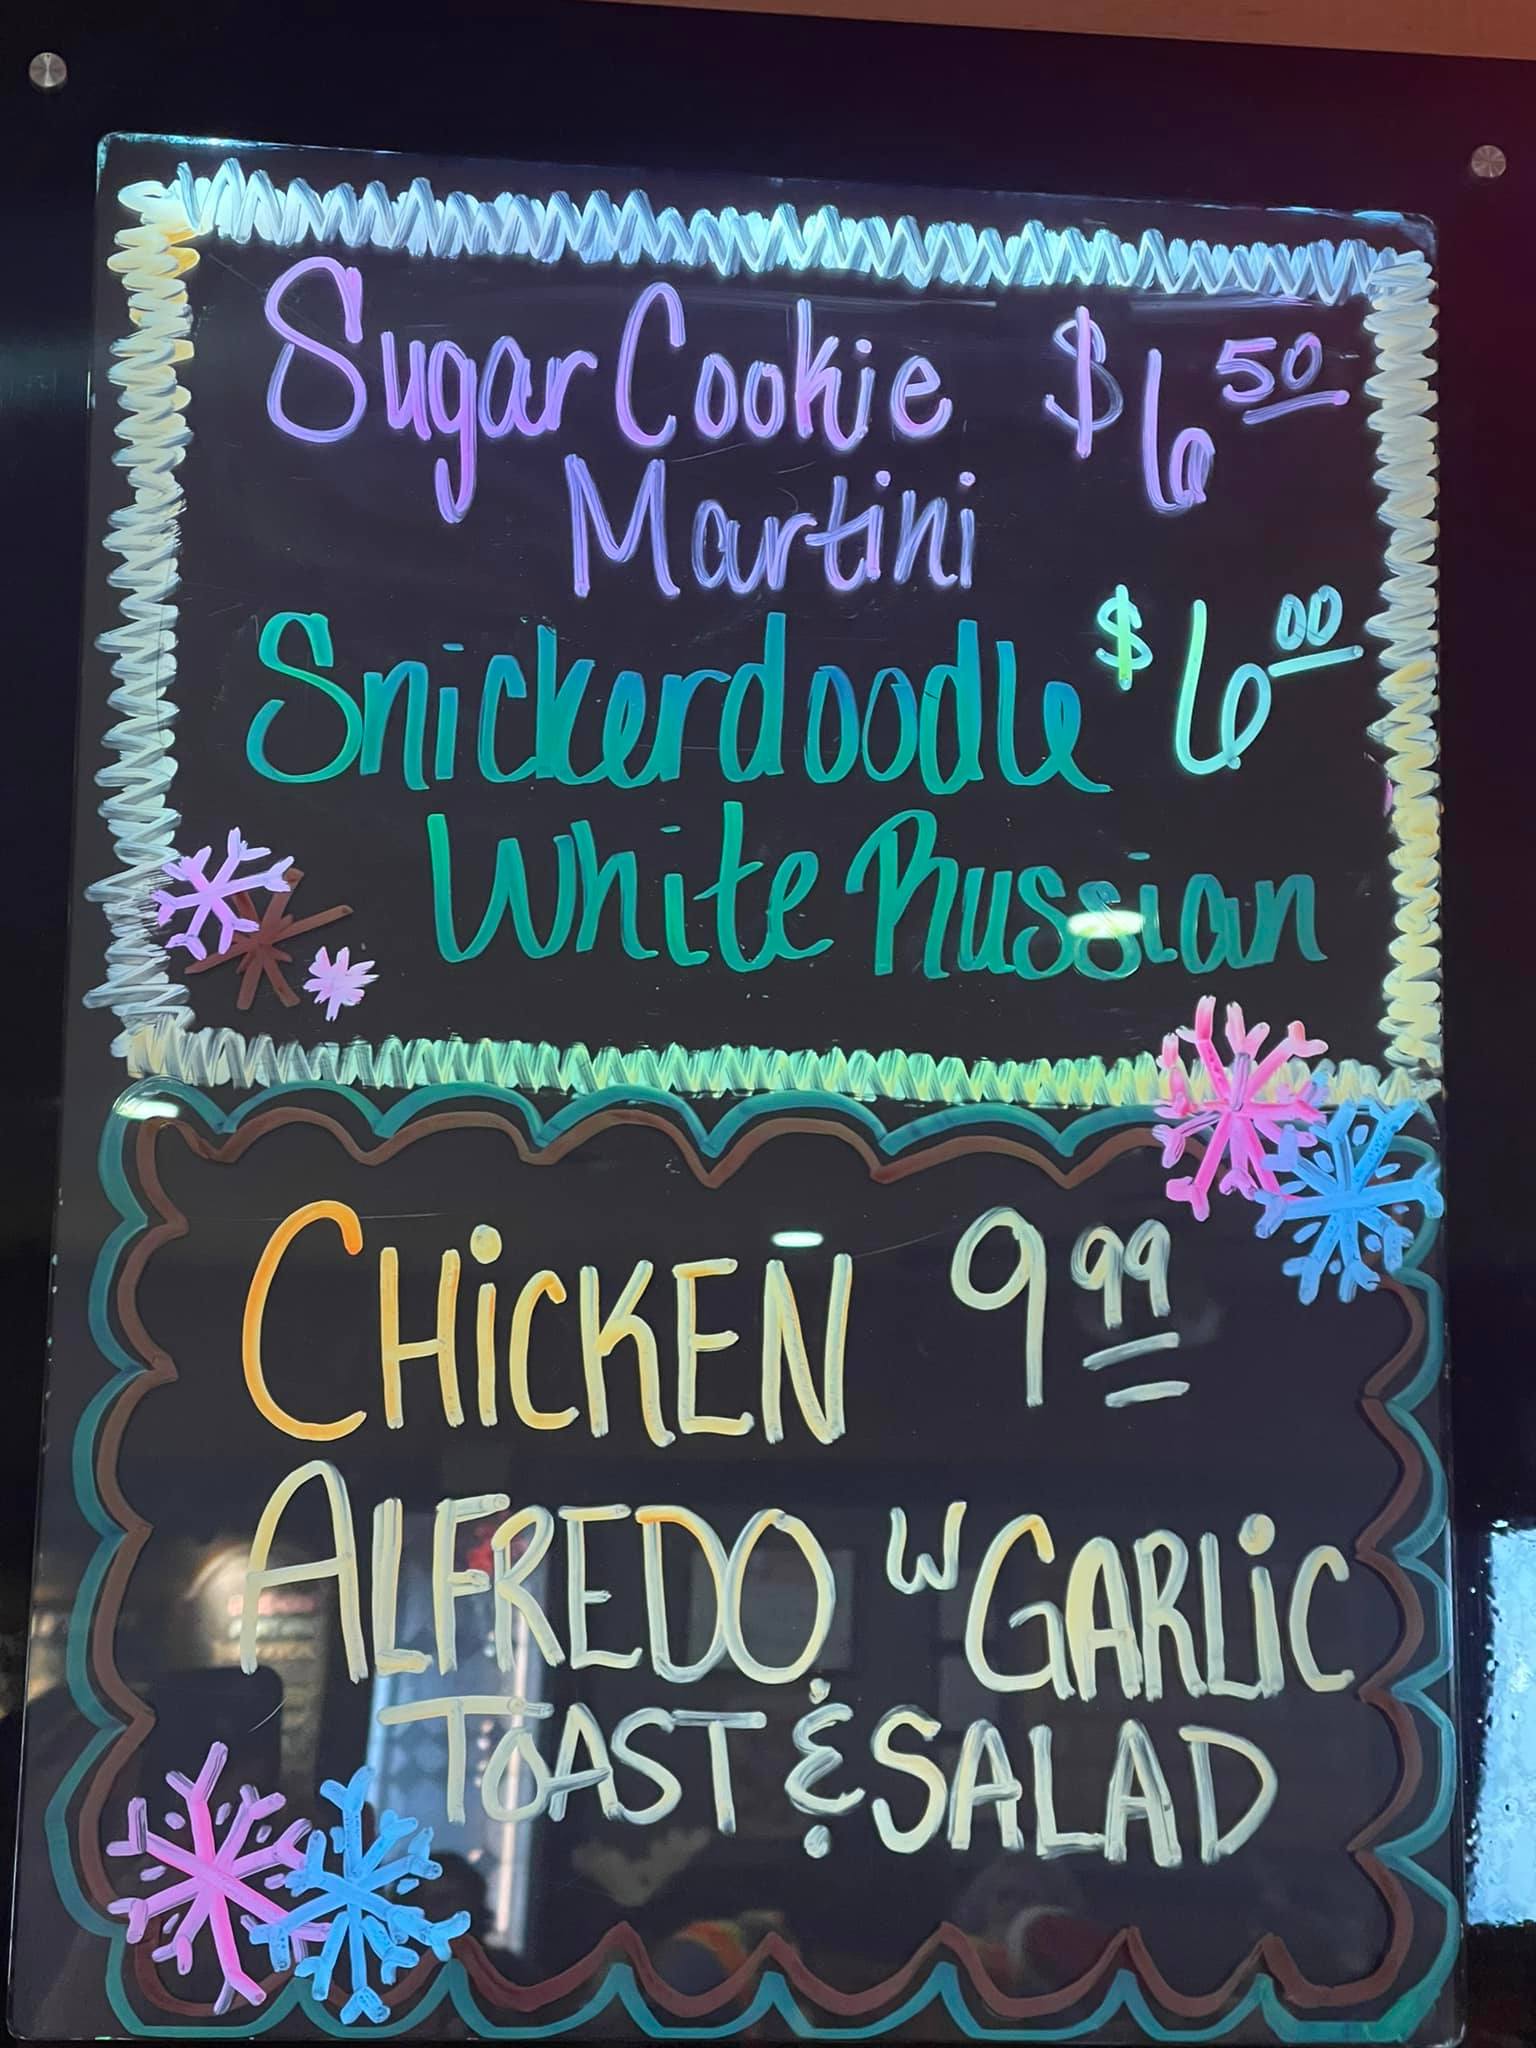 Sugar Cookie $6 50
Martini
Snickerdoodle $6 00
White Russian
CHiCKEN 9 99
ALFREDO w GARLiC
TOAST & SALAD